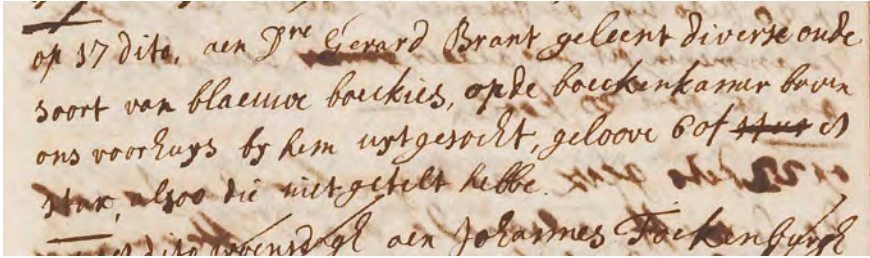 op 17 dito, aen Dre Gerard Brant geleent diverse oude
soort van blaeuwe boeckies, op de boeckenkamer boven
ons voorhuys by hem uytgesocht, geloove 6 of stux
stux, alsoo die niet getelt hebbe.
dito woensdagh aen Johannes Fockenburgh